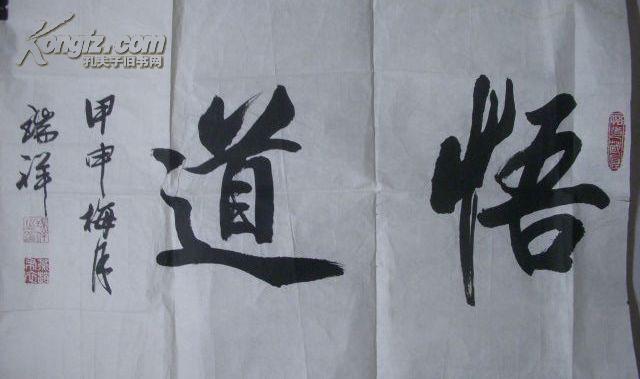 悟道
甲申梅月
瑞祥
Kongfz.com
孔夫子旧书网